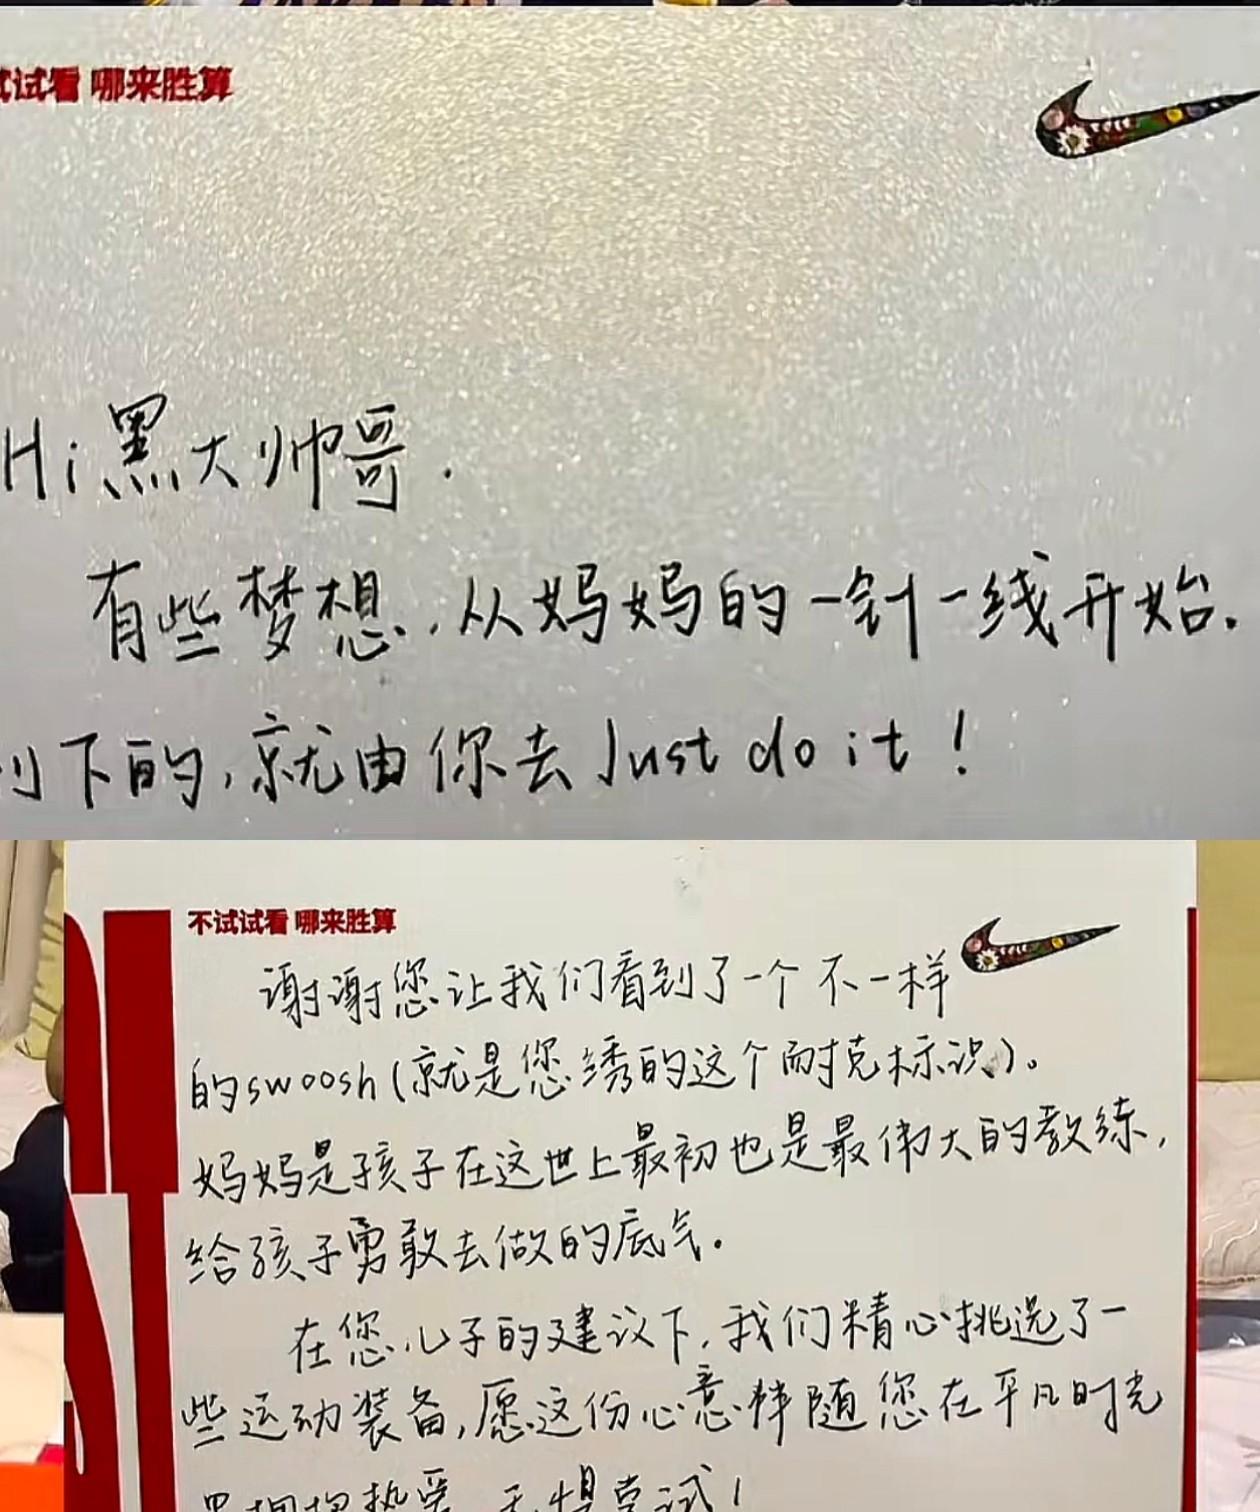 试看 哪来胜算
Hi 黑大帅哥.
有些梦想,从妈妈的一针一线开始.
下的,就由你去 Just do it!
不试试看 哪来胜算
谢谢您让我们看到了一个不一样
的swoosh(就是您绣的这个耐克标识)。
妈妈是孩子在这世上最初也是最伟大的教练,
给孩子勇敢去做的底气。
在您儿子的建议下,我们精心挑选了一
些运动装备,愿这份心意伴随您在平凡时光
拥抱热爱 无惧尝试!